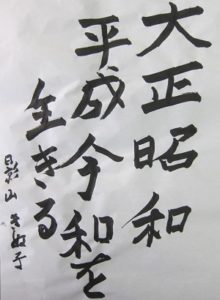 大正昭和
平成令和を
生きる
影山きぬ子